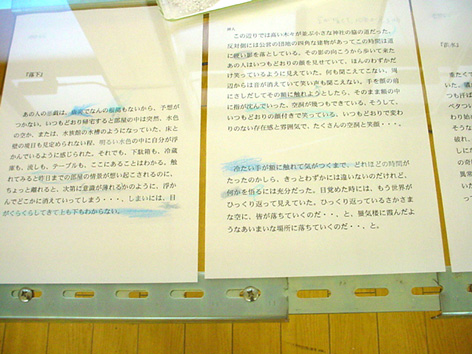 『落下』
あの人の意識は、曲面でなんの根拠もないから、予想が
つかない。いつもどおり帰宅すると部屋の中は突然、水色
の空か、または、水族館の水槽のようになっていた。床と
壁の境目も見定められない程、明るい水色の中に自分が浮
かんでいるように感じられた。それでも、下駄箱も、冷蔵
庫も、流しも、テーブルも、ここにあることはわかる。触
れてみると昨日までの部屋の情景が想い起こされるのに、
ちょっと離れると、次第に意識が薄れるかのように、浮か
んでどこかに消えていってしまう・・・、しまいには、目
がぐらぐらしてきて上も下もわからない。
この辺りでは高い木々が並ぶ小さな神社の脇の道だった。
反対側には公営の団地の四角な建物があってこの時間は道
に硬い影を落としている。その影の向こうから歩いて来た
あの人はいつもどおりの顔を見せていて、ほんのわずかだ
け笑っているように見えていた。何も聞こえてこない。周
辺からは音が消えていて笑い声も聞こえない。手を顔の前
にさしだしてその額に触れようとしたら、そのまま額の中
に指が沈んでいった。空洞が幾つもできている。そうして、
いつもどおりの顔付きで笑っている。いつもどおりで変わ
りのない存在感と雰囲気で、たくさんの空洞と笑顔・・・。
冷たい手が額に触れて気がつくまで、どれほどの時間が
たったのかしら、きっとわずかには違いないのだけれど、
何かを悟るには充分だった。目覚めた時には、もう世界が
ひっくり返って見えていた。ひっくり返っているさかさま
な空に、皆が落ちていくのだ・・、と。蜃気楼に霞んだよ
うなあいまいな場所に落ちていくのだ・・、と。